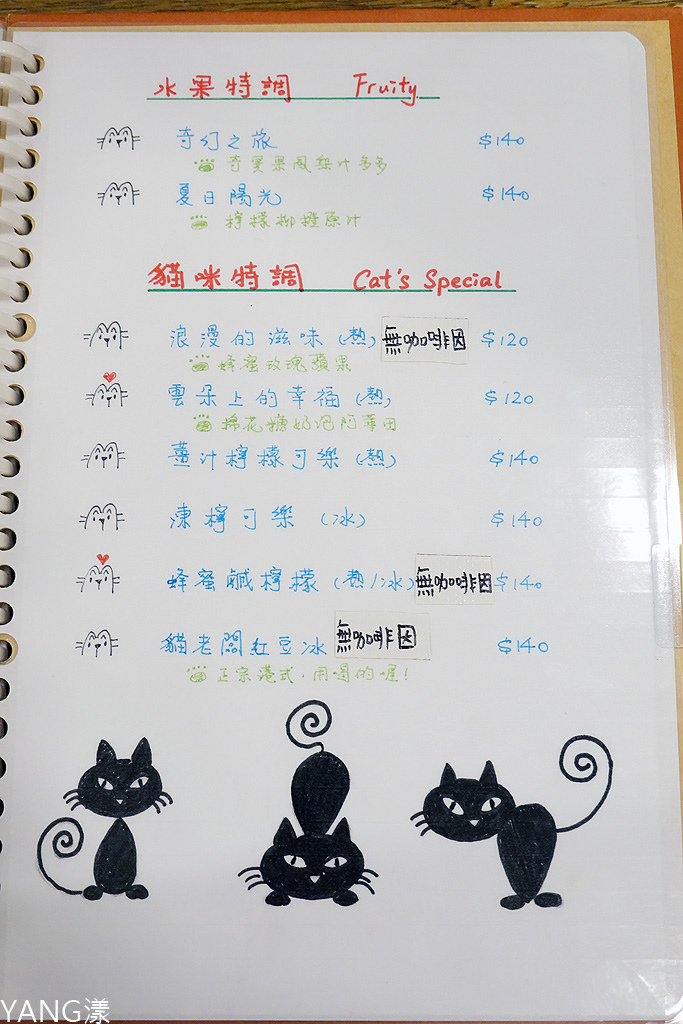 水果特調 Fruity
奇幻之旅 $140
奇異果鳳梨汁多多
夏日陽光 $140
檸檬柳橙原汁
貓咪特調 Cat's Special
浪漫的滋味(熱) 無咖啡因 $120
蜂蜜玫瑰蘋果
雲朵上的幸福(熱) $120
棉花糖奶泡阿華田
薑汁檸檬可樂(熱) $140
凍檸可樂(冰) $140
蜂蜜鹹檸檬(熱/冰) 無咖啡因 $140
貓老闆紅豆冰 無咖啡因 $140
正宗港式,用喝的喔!
YANG漾